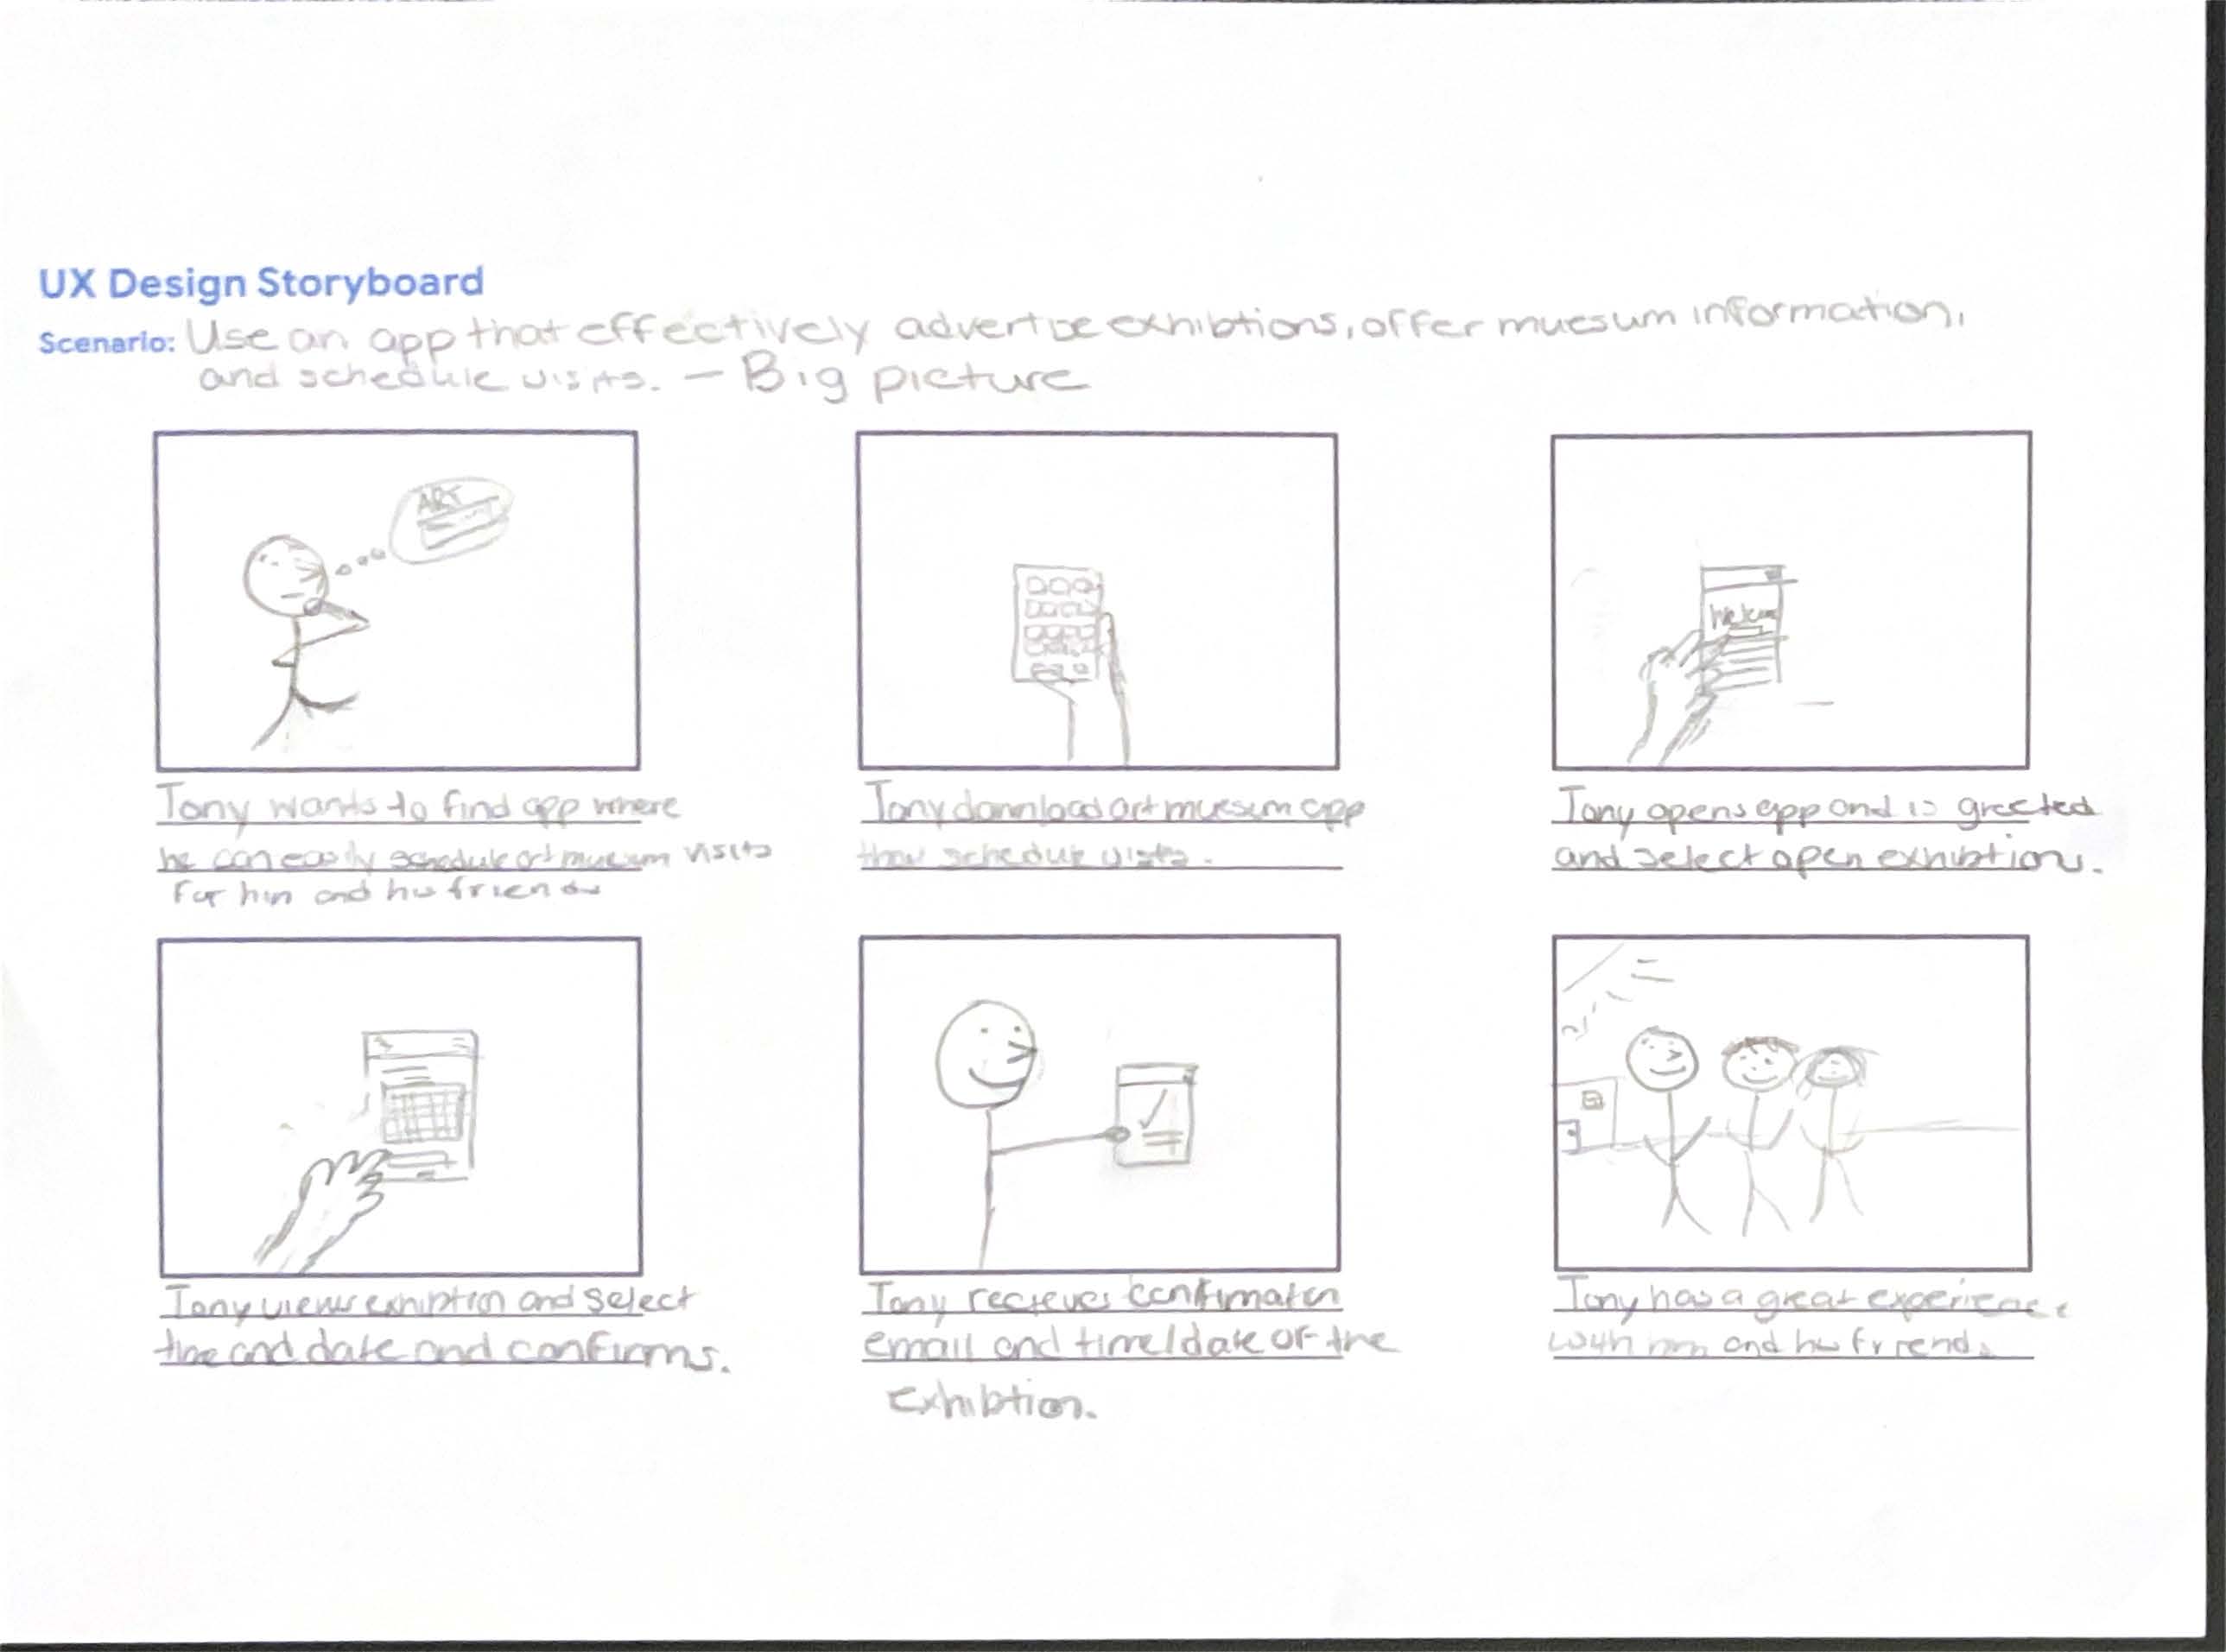 UX Design Storyboard
Scenario: Use an app that effectively advertise exhibtions, offer muesum information,
and schedule visits. — Big picture
ART
Tony wants to find app where
he can easily schedule art museum visits
for him and his friends
Tony download art muesum app
that schedule visits.
Welcome
Tony opens app and is greeted
and select open exhibtion.
Tony views exhibtion and select
time and date and confirms.
Tony recieves confirmation
email and time/date of the
exhibtion.
Tony has a great experience
with him and his friends